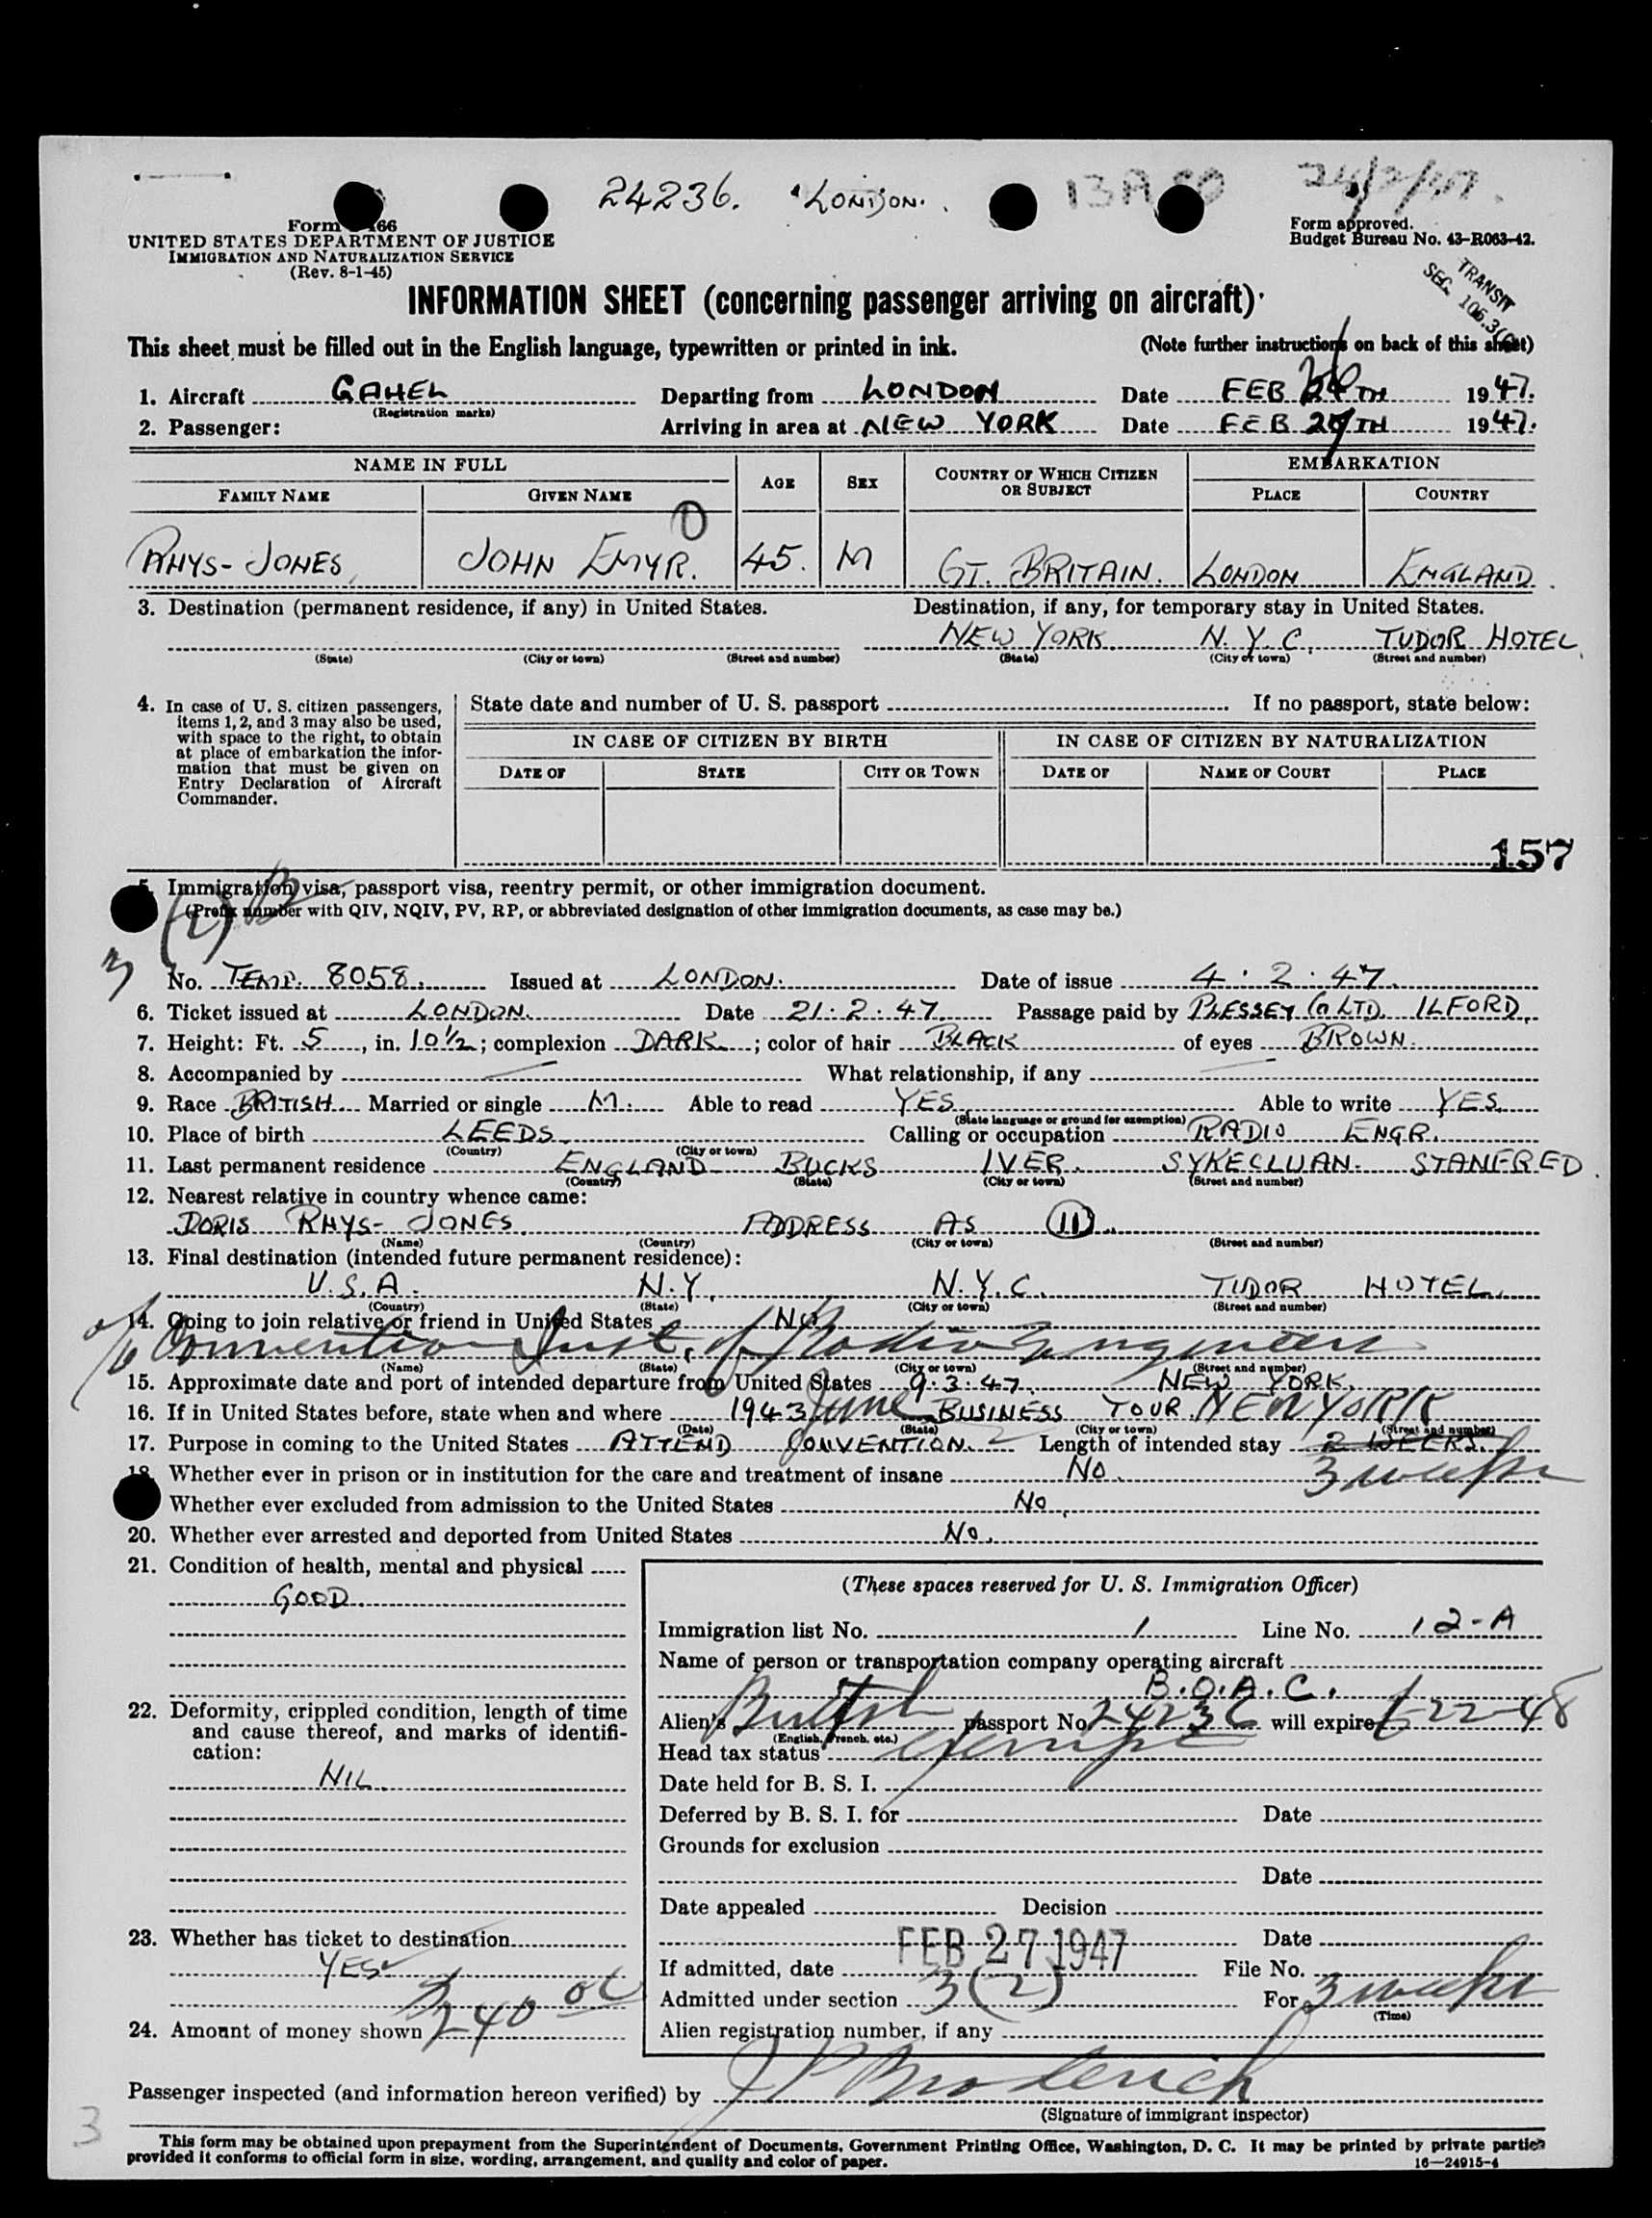 24236. LONDON. 13A 50
Form 66
UNITED STATES DEPARTMENT OF JUSTICE
IMMIGRATION AND NATURALIZATION SERVICE
(Rev. 8-1-45)
Form approved.
Budget Bureau No. 43-R063-42.
TRANSIT
SEC. 106.3
INFORMATION SHEET (concerning passenger arriving on aircraft)
This sheet must be filled out in the English language, typewritten or printed in ink. (Note further instructions on back of this sheet)
1. Aircraft GAHEL Departing from LONDON Date FEB 26 TH 1947.
(Registration marks)
2. Passenger: Arriving in area at NEW YORK Date FEB 27 TH 1947.
NAME IN FULL AGE SEX COUNTRY OF WHICH CITIZEN OR SUBJECT EMBARKATION
FAMILY NAME GIVEN NAME PLACE COUNTRY
RHYS-JONES, JOHN EMYR. 45. M GT. BRITAIN. LONDON ENGLAND.
3. Destination (permanent residence, if any) in United States. Destination, if any, for temporary stay in United States.
NEW YORK. N.Y.C. TUDOR HOTEL.
(State) (City or town) (Street and number) (State) (City or town) (Street and number)
4. In case of U. S. citizen passengers, items 1, 2, and 3 may also be used, with space to the right, to obtain at place of embarkation the information that must be given on Entry Declaration of Aircraft Commander.
State date and number of U. S. passport If no passport, state below:
IN CASE OF CITIZEN BY BIRTH IN CASE OF CITIZEN BY NATURALIZATION
DATE OF STATE CITY OR TOWN DATE OF NAME OF COURT PLACE
157
5. Immigration visa, passport visa, reentry permit, or other immigration document.
(Prefix number with QIV, NQIV, PV, RP, or abbreviated designation of other immigration documents, as case may be.)
3 (2) B
No. TEMP. 8058. Issued at LONDON. Date of issue 4.2.47.
6. Ticket issued at LONDON. Date 21.2.47. Passage paid by PLESSEY Co LTD. ILFORD.
7. Height: Ft. 5, in. 10½; complexion DARK; color of hair BLACK of eyes BROWN.
8. Accompanied by What relationship, if any
9. Race BRITISH Married or single M. Able to read YES Able to write YES.
(State language or ground for exemption)
10. Place of birth LEEDS. Calling or occupation RADIO ENGR.
(Country) (City or town)
11. Last permanent residence ENGLAND BUCKS IVER. SYKECLUAN. STANFRED.
(Country) (State) (City or town) (Street and number)
12. Nearest relative in country whence came:
DORIS RHYS-JONES. ADDRESS AS (11).
(Name) (Country) (City or town) (Street and number)
13. Final destination (intended future permanent residence):
U.S.A. N.Y. N.Y.C. TUDOR HOTEL.
(Country) (State) (City or town) (Street and number)
14. Going to join relative or friend in United States NO
% Convention Inst. of Radio Engineers
(Name) (State) (City or town) (Street and number)
15. Approximate date and port of intended departure from United States 9.3.47. NEW YORK.
16. If in United States before, state when and where 1943 June BUSINESS TOUR NEW YORK
(Date) (State) (City or town) (Street and number)
17. Purpose in coming to the United States ATTEND CONVENTION. Length of intended stay 2 WEEKS.
3 weeks
18. Whether ever in prison or in institution for the care and treatment of insane NO.
Whether ever excluded from admission to the United States NO.
20. Whether ever arrested and deported from United States NO.
21. Condition of health, mental and physical
GOOD.
22. Deformity, crippled condition, length of time and cause thereof, and marks of identification:
NIL.
23. Whether has ticket to destination
YES
24. Amount of money shown 240 00
(These spaces reserved for U. S. Immigration Officer)
Immigration list No. 1 Line No. 12-A
Name of person or transportation company operating aircraft
B.O.A.C.
Alien's British passport No. 24236 will expire 6-22-48
(English, French, etc.)
Head tax status exempt
Date held for B. S. I.
Deferred by B. S. I. for Date
Grounds for exclusion
Date
Date appealed Decision
Date
If admitted, date FEB 27 1947 File No.
Admitted under section 3(2) For 3 weeks
(Time)
Alien registration number, if any
Passenger inspected (and information hereon verified) by J P Broderick
(Signature of immigrant inspector)
3
This form may be obtained upon prepayment from the Superintendent of Documents, Government Printing Office, Washington, D. C. It may be printed by private parties
provided it conforms to official form in size, wording, arrangement, and quality and color of paper.
16—24915-4